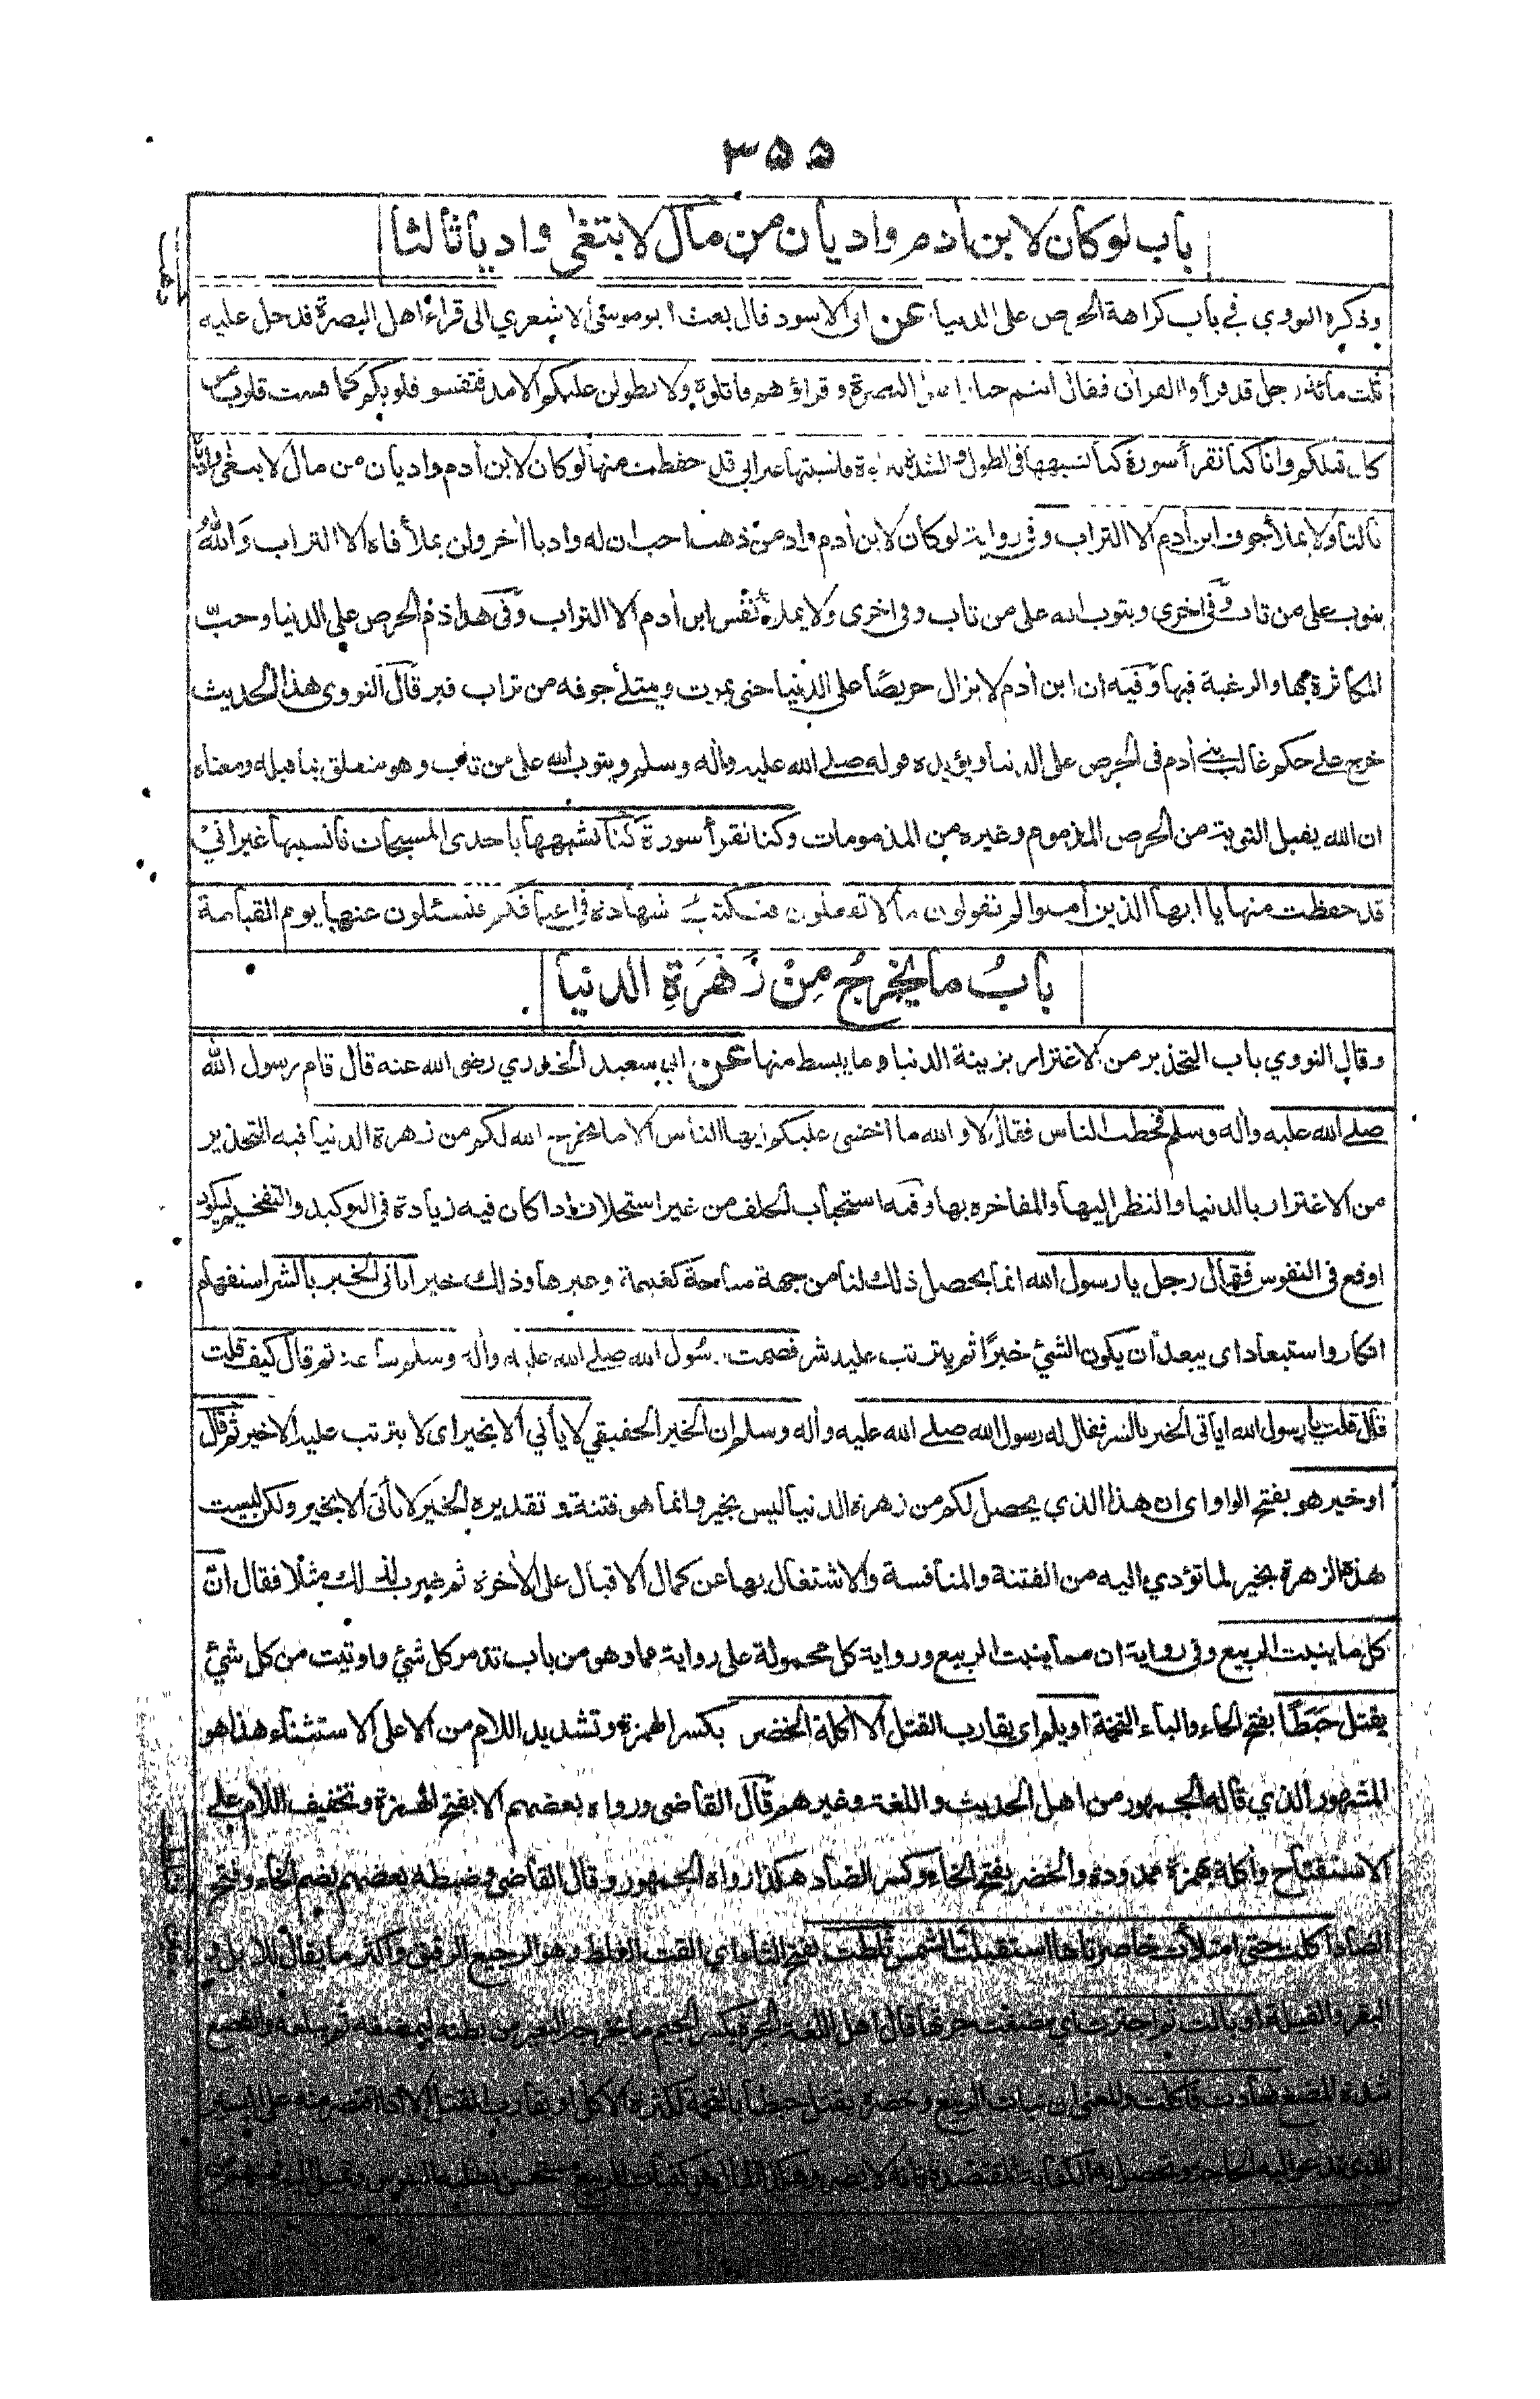 ٣٥٥
باب لو كان لابن أدم واديان من مال لابتغى واديا ثالثا
وذكره النووي في باب كراهة الحرص على الدنيا عن ابى الاسود قال بعث ابو موسى الاشعري الى قراء اهل البصرة فدخل عليه
ثلث مائة رجل قد قرأوا القران فقال انتم خيار اهل البصرة و قراؤهم فاتلوه ولا يطولن عليكم الامد فتقسو قلوبكم كما قست قلوب من
كان قبلكم وانا كنا نقرأ سورة كنا نشبهها في الطول والشدة ببراءة فانسيتها غير اني قد حفظت منها لو كان لابن أدم واديان من مال لابتغى واديا
ثالثا ولا يملأ جوف ابن أدم الا التراب وفي رواية لو كان لابن أدم واد من ذهب احب ان له واديا اخر ولن يملأ فاه الا التراب وَاللهُ
يتوب على من تاب وفي اخرى ويتوب الله على من تاب وفي اخرى ولا يملأ نفس ابن أدم الا التراب وفي هذا ذم الحرص على الدنيا وحبّ
المكاثرة بها والرغبة فيها وفيه ان ابن أدم لا يزال حريصًا على الدنيا حتى يموت ويمتلئ جوفه من تراب قبره قال النووي هذا الحديث
خرج على حكم غالب بني أدم في الحرص على الدنيا ويؤيده قوله صلى الله عليه واله وسلم ويتوب الله على من تاب وهو متعلق بما قبله ومعناه
ان الله يقبل التوبة من الحرص المذموم وغيره من المذمومات وكنا نقرأ سورة كنا نشبهها باحدى المسبحات فانسيتها غير اني
قد حفظت منها يا ايها الذين أمنوا لم تقولون ما لا تفعلون فتكتب شهادة في اعناقكم فتسئلون عنها يوم القيامة
بابُ ما يخرجُ مِنْ زَهْرَةِ الدنيا
وقال النووي باب التحذير من الاغترار بزينة الدنيا وما يبسط منها عن ابي سعيد الخدري رضى الله عنه قال قام رسول الله
صلى الله عليه واله وسلم فخطب الناس فقال لا والله ما اخشى عليكم ايها الناس الا ما يخرج الله لكم من زهرة الدنيا فيه التحذير
من الاغترار بالدنيا والنظر اليها والمفاخرة بها وفيه استحباب الحلف من غير استحلاف اذا كان فيه زيادة في التوكيد والتفخيم ليكون
اوقع في النفوس فقال رجل يا رسول الله انما يحصل ذلك لنا من جهة مباحة كغنيمة وغيرها وذلك خير اياتى الخير بالشر استفهام
انكار واستبعاد اى يبعد أن يكون الشئ خيرًا ثم يترتب عليه شر فصمت رسول الله صلى الله عليه واله وسلم ساعة ثم قال كيف قلت
قال قلت يا رسول الله اياتى الخير بالشر فقال له رسول الله صلى الله عليه واله وسلم ان الخير الحقيقي لا يأتي الا بخير اى لا يترتب عليه الا خير ثم قال
او خير هو بفتح الواو اى ان هذا الذي يحصل لكم من زهرة الدنيا ليس بخير وانما هو فتنة و تقديره الخير لا يأتى الا بخير ولكن ليست
هذه الزهرة بخير لما تؤدي اليه من الفتنة والمنافسة والاشتغال بها عن كمال الاقبال على الأخرة ثم ضرب لذلك مثلا فقال انّ
كل ما ينبت الربيع وفي رواية ان مما ينبت الربيع ورواية كل محمولة على رواية مما وهو من باب تدمر كل شئ واوتيت من كل شئ
يقتل حَبَطًا بفتح الحاء والباء التخمة او يلم اى يقارب القتل الا أكلة الخضر بكسر الهمزة وتشديد اللام من الا على الاستثناء هذا هو
المشهور الذي قاله الجمهور من اهل الحديث واللغة وغيرهم قال القاضي ورواه بعضهم الا بفتح الهمزة وتخفيف اللام على
الاستفتاح وأكلة بهمزة ممدودة والخضر بفتح الخاء وكسر الضاد هكذا رواه الجمهور وقال القاضي وضبطه بعضهم بضم الخاء وفتح
الضاد اكلت حتى امتلأت خاصرتاها استقبلت الشمس ثلطت بفتح الثاء اي القت الثلط وهو الرجيع الرقيق واكثر ما يقال للابل و
البقر والفيلة او بالت ثم اجترت اي مضغت جرتها قال اهل اللغة الجرة بكسر الجيم ما يخرجه البعير من بطنه ليمضغه ثم يبلعه والقصع
شدة المضغ فعادت فاكلت والمعنى ان نبات الربيع وخضره يقتل حبطا بالتخمة لكثرة الاكل او يقارب القتل الا اذا اقتصر منه على اليسير
الذي تدعو اليه الحاجة وتحصل به الكفاية المقتصدة فانه لا يضر وهكذا المال هو كنبات الربيع